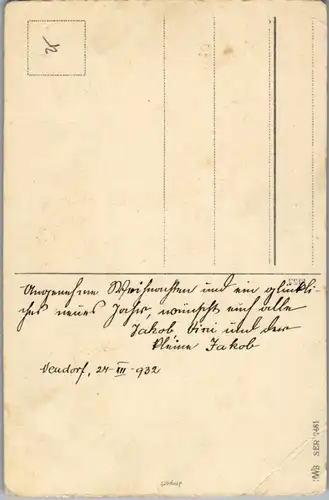 Angenehme Weihnachten und ein glückli-
ches neues Jahr, wünscht euch alle
Jakob Vini und der
kleine Jakob
24 III 932
SER